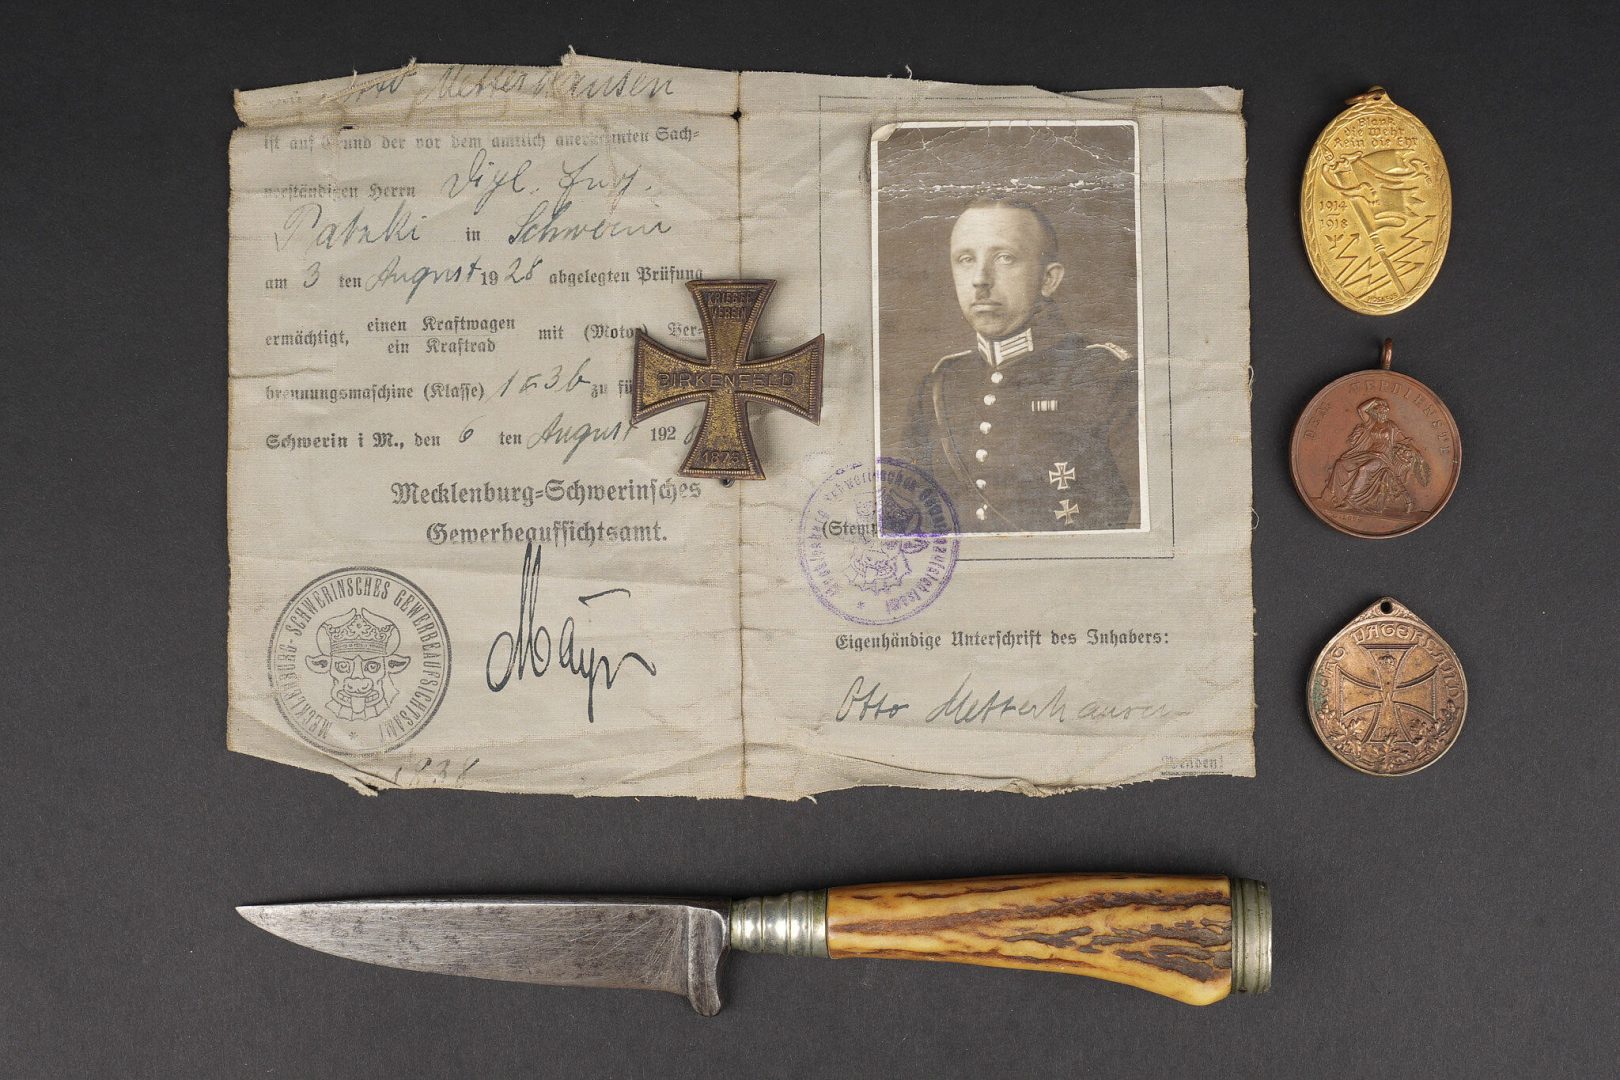 Otto Metterhausen
ist auf Grund der vor dem amtlich anerkannten Sach-
verständigen Herrn Dipl. Ing.
in Schwerin
am 3 ten August 1928 abgelegten Prüfung
ermächtigt, einen Kraftwagen mit (Motor) Ver-
ein Kraftrad
brennungsmaschine (Klasse) 1 3b zu
Schwerin i M., den 6 ten August 192
Mecklenburg-Schwerinsches
Gewerbeaufsichtsamt.
MECKLENBURG-SCHWERINSCHES GEWERBEAUFSICHTSAMT
KRIEGER
VEREIN
BIRKENFELD
1873
(Stemp
Eigenhändige Unterschrift des Inhabers:
Otto Metterhausen
Wenden!
Blank
die Wehr
Rein die Ehr
1914
1918
DEM VERDIENSTE